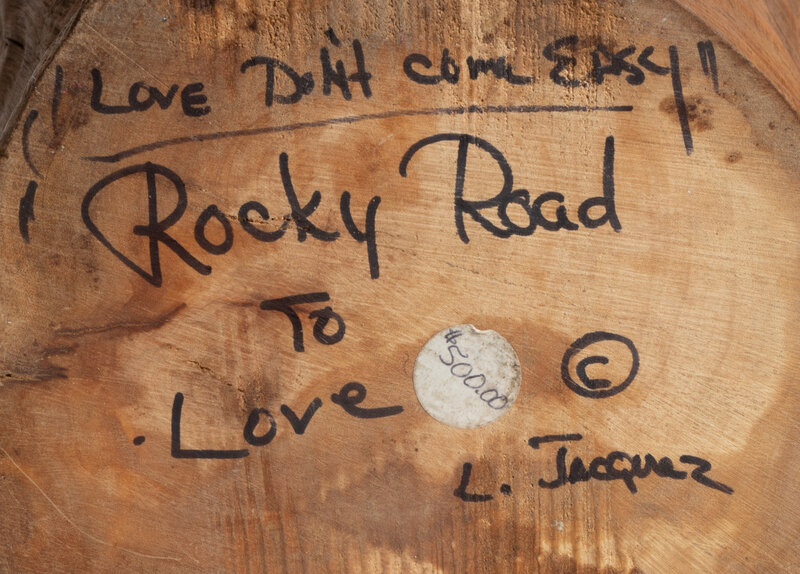 "Love Don't come Easy"
Rocky Road
To
Love
$500.00
©
L. Jacquez